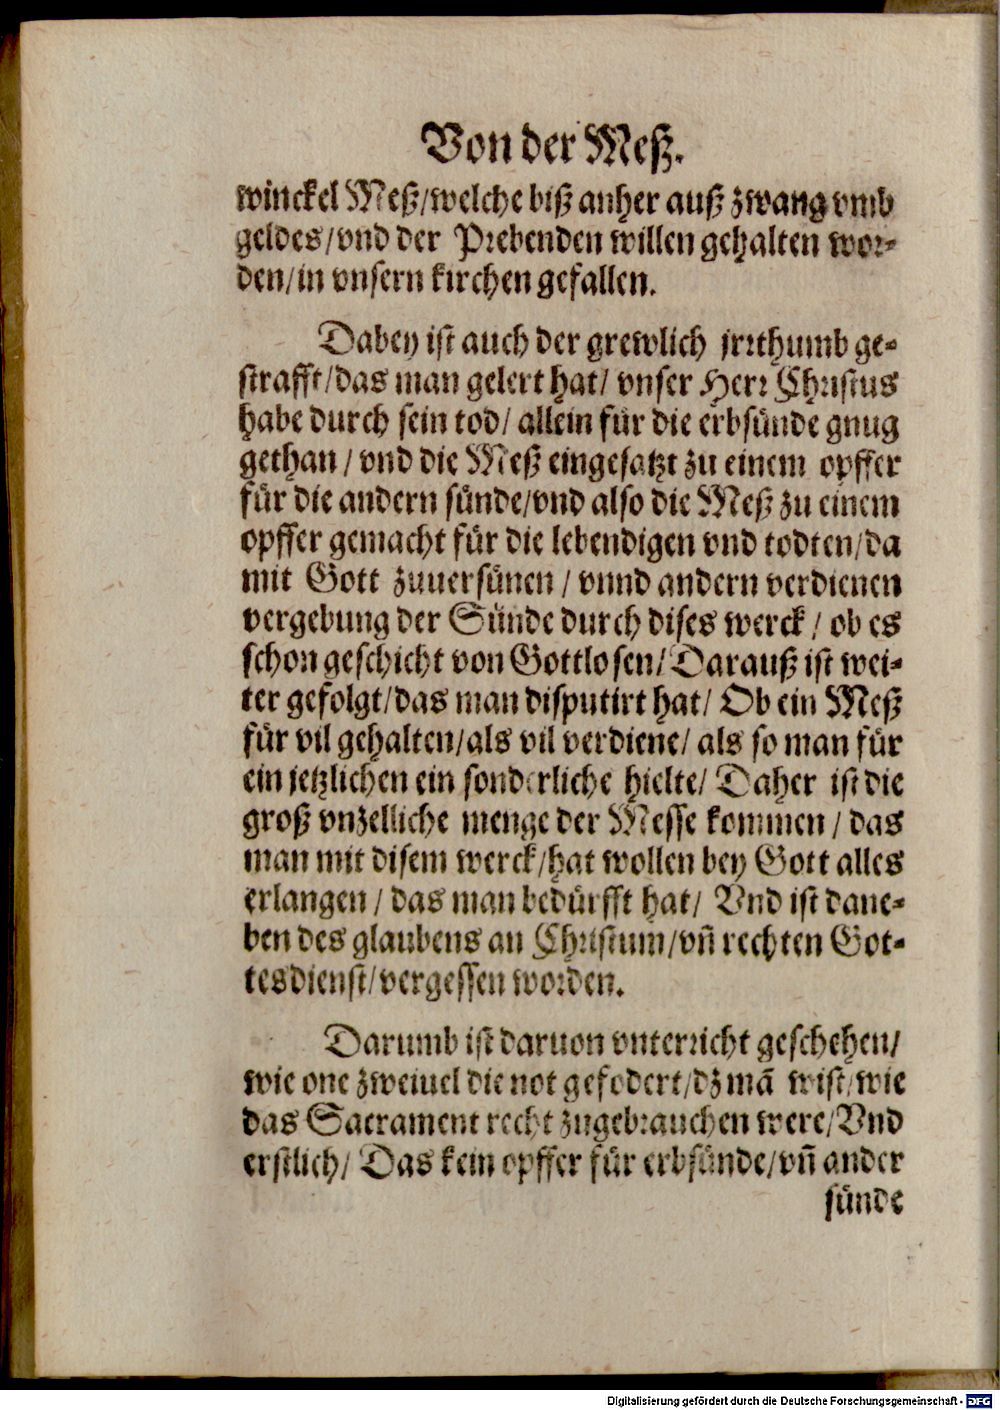 Von der Meß.
winckel Meß/welche biß anher auß zwang vmb
geldes/vnd der Prebenden willen gehalten wor-
den/in vnsern kirchen gefallen.
Dabey ist auch der grewlich jrrthumb ge-
strafft/das man gelert hat/ vnser Herr Christus
habe durch sein tod/ allein für die erbsünde gnug
gethan/ vnd die Meß eingesatzt zu einem opffer
für die andern sünde/vnd also die Meß zu einem
opffer gemacht für die lebendigen vnd todten/da
mit Gott zuuersünen/ vnnd andern verdienen
vergebung der Sünde durch dises werck/ ob es
schon geschicht von Gottlosen/Darauß ist wei-
ter gefolgt/das man disputirt hat/ Ob ein Meß
für vil gehalten/als vil verdiene/ als so man für
ein jetzlichen ein sonderliche hielte/ Daher ist die
groß vnzelliche menge der Messe kommen/ das
man mit disem werck/hat wollen bey Gott alles
erlangen/ das man bedürfft hat/ Vnd ist dane-
ben des glaubens an Christum/vn̄ rechten Got-
tesdienst/vergessen worden.
Darumb ist daruon vnterricht geschehen/
wie one zweiuel die not gefodert/dz mā wist/wie
das Sacrament recht zugebrauchen were/Vnd
erstlich/ Das kein opffer für erbsünde/vn̄ ander
sünde
Digitalisierung gefördert durch die Deutsche Forschungsgemeinschaft - DFG